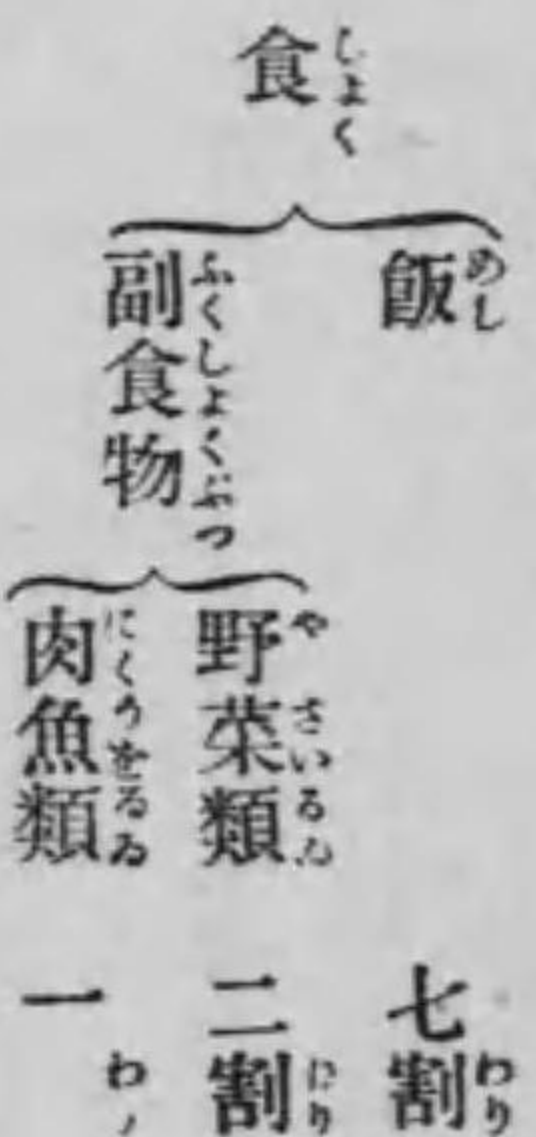 食
しょく
飯
めし
七割
わり
副食物
ふくしょくぶつ
野菜類
やさいるゐ
二割
わり
肉魚類
にくうをるゐ
一
わ